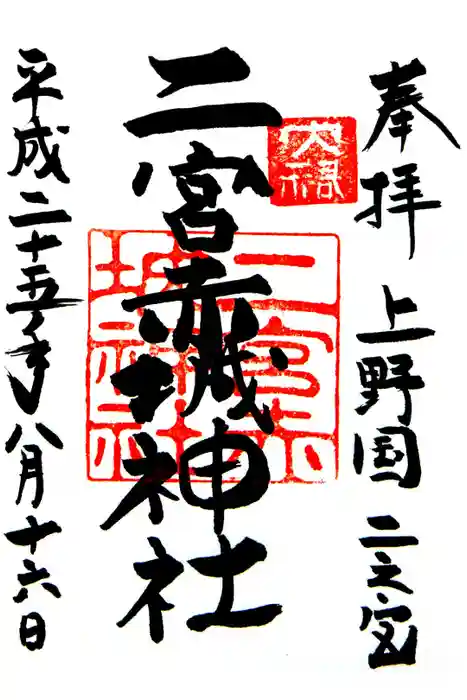 奉拝 上野国 二之宮
二宮赤城神社
平成二十五年八月十六日
二宮赤城神社